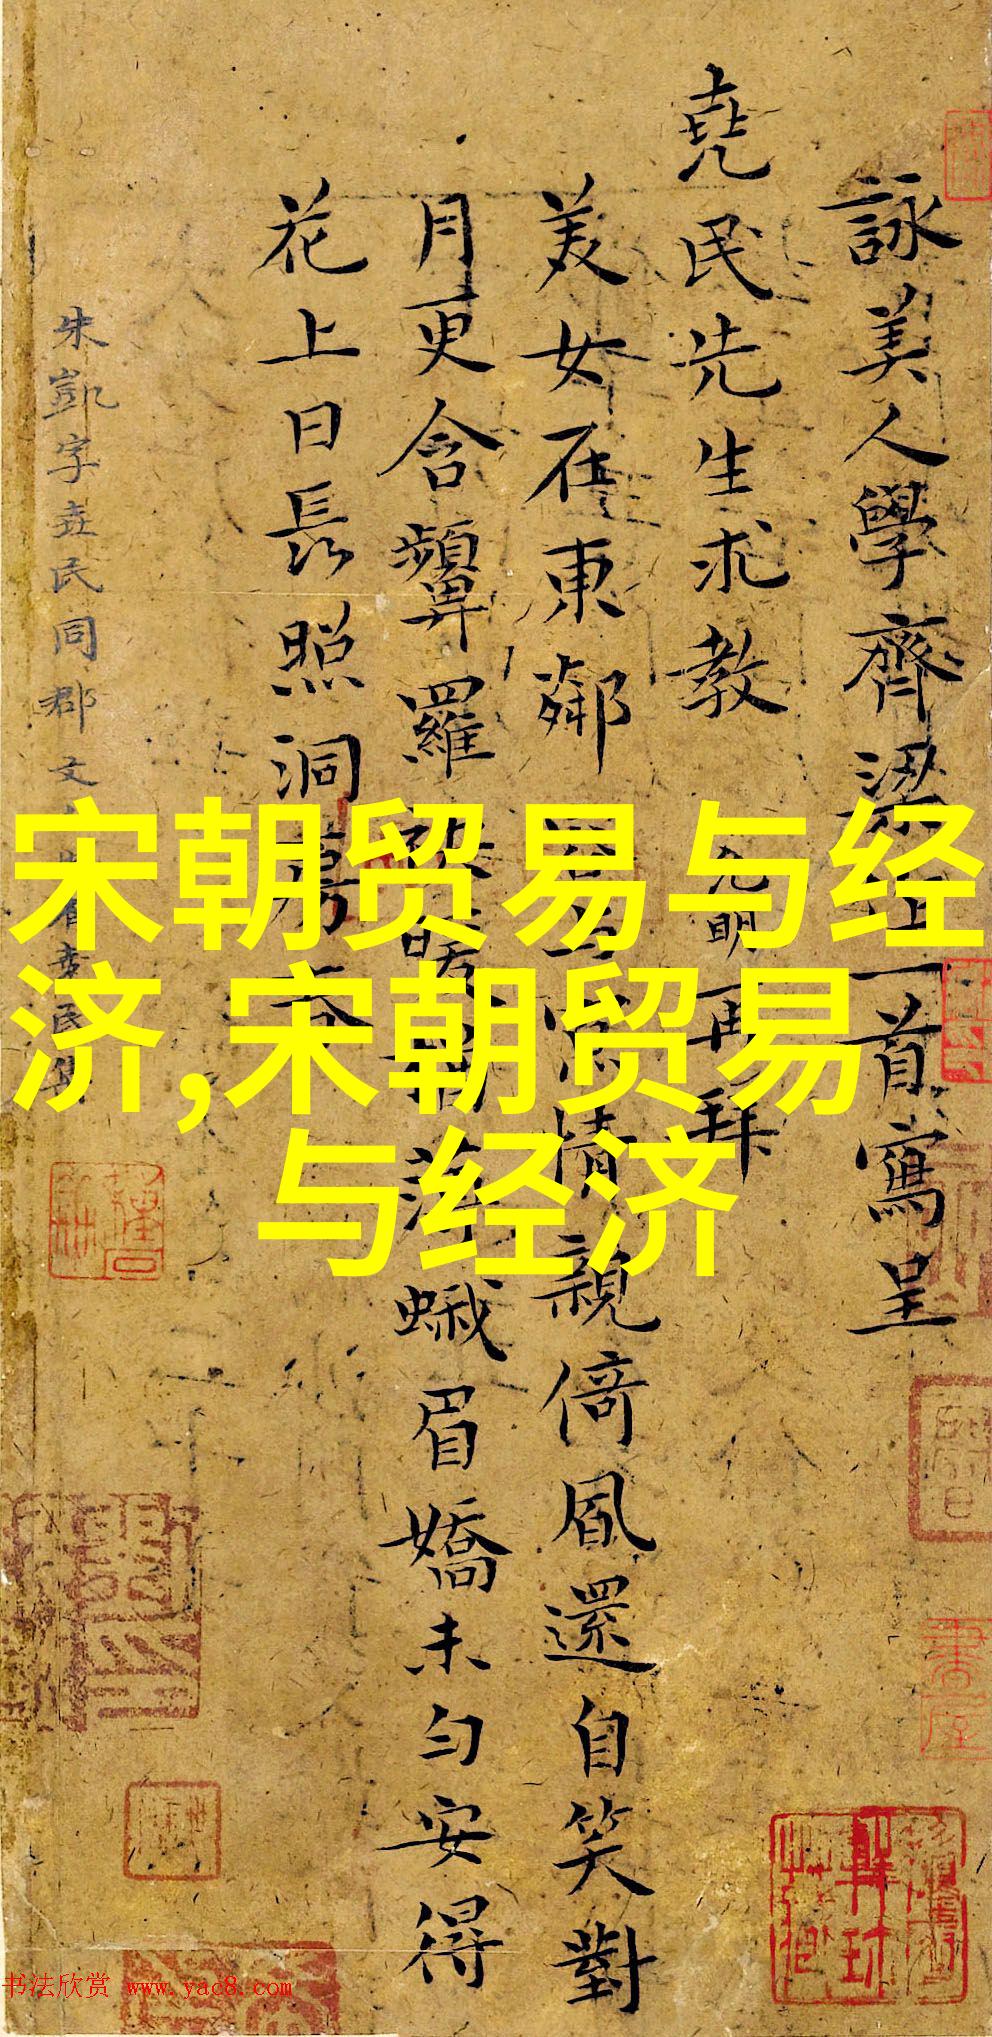 詠美人學齊梁體一首寫呈
堯民先生求教 允明再拜
美女在東鄰 情親倚風還自笑對
月更含顰羅 落蛾眉嬌未勻安得
花上日長照洞房
朱凱字堯民同郡文
宋朝贸易与经
济,宋朝贸易
与经济
书法欣赏 www.yac8.com